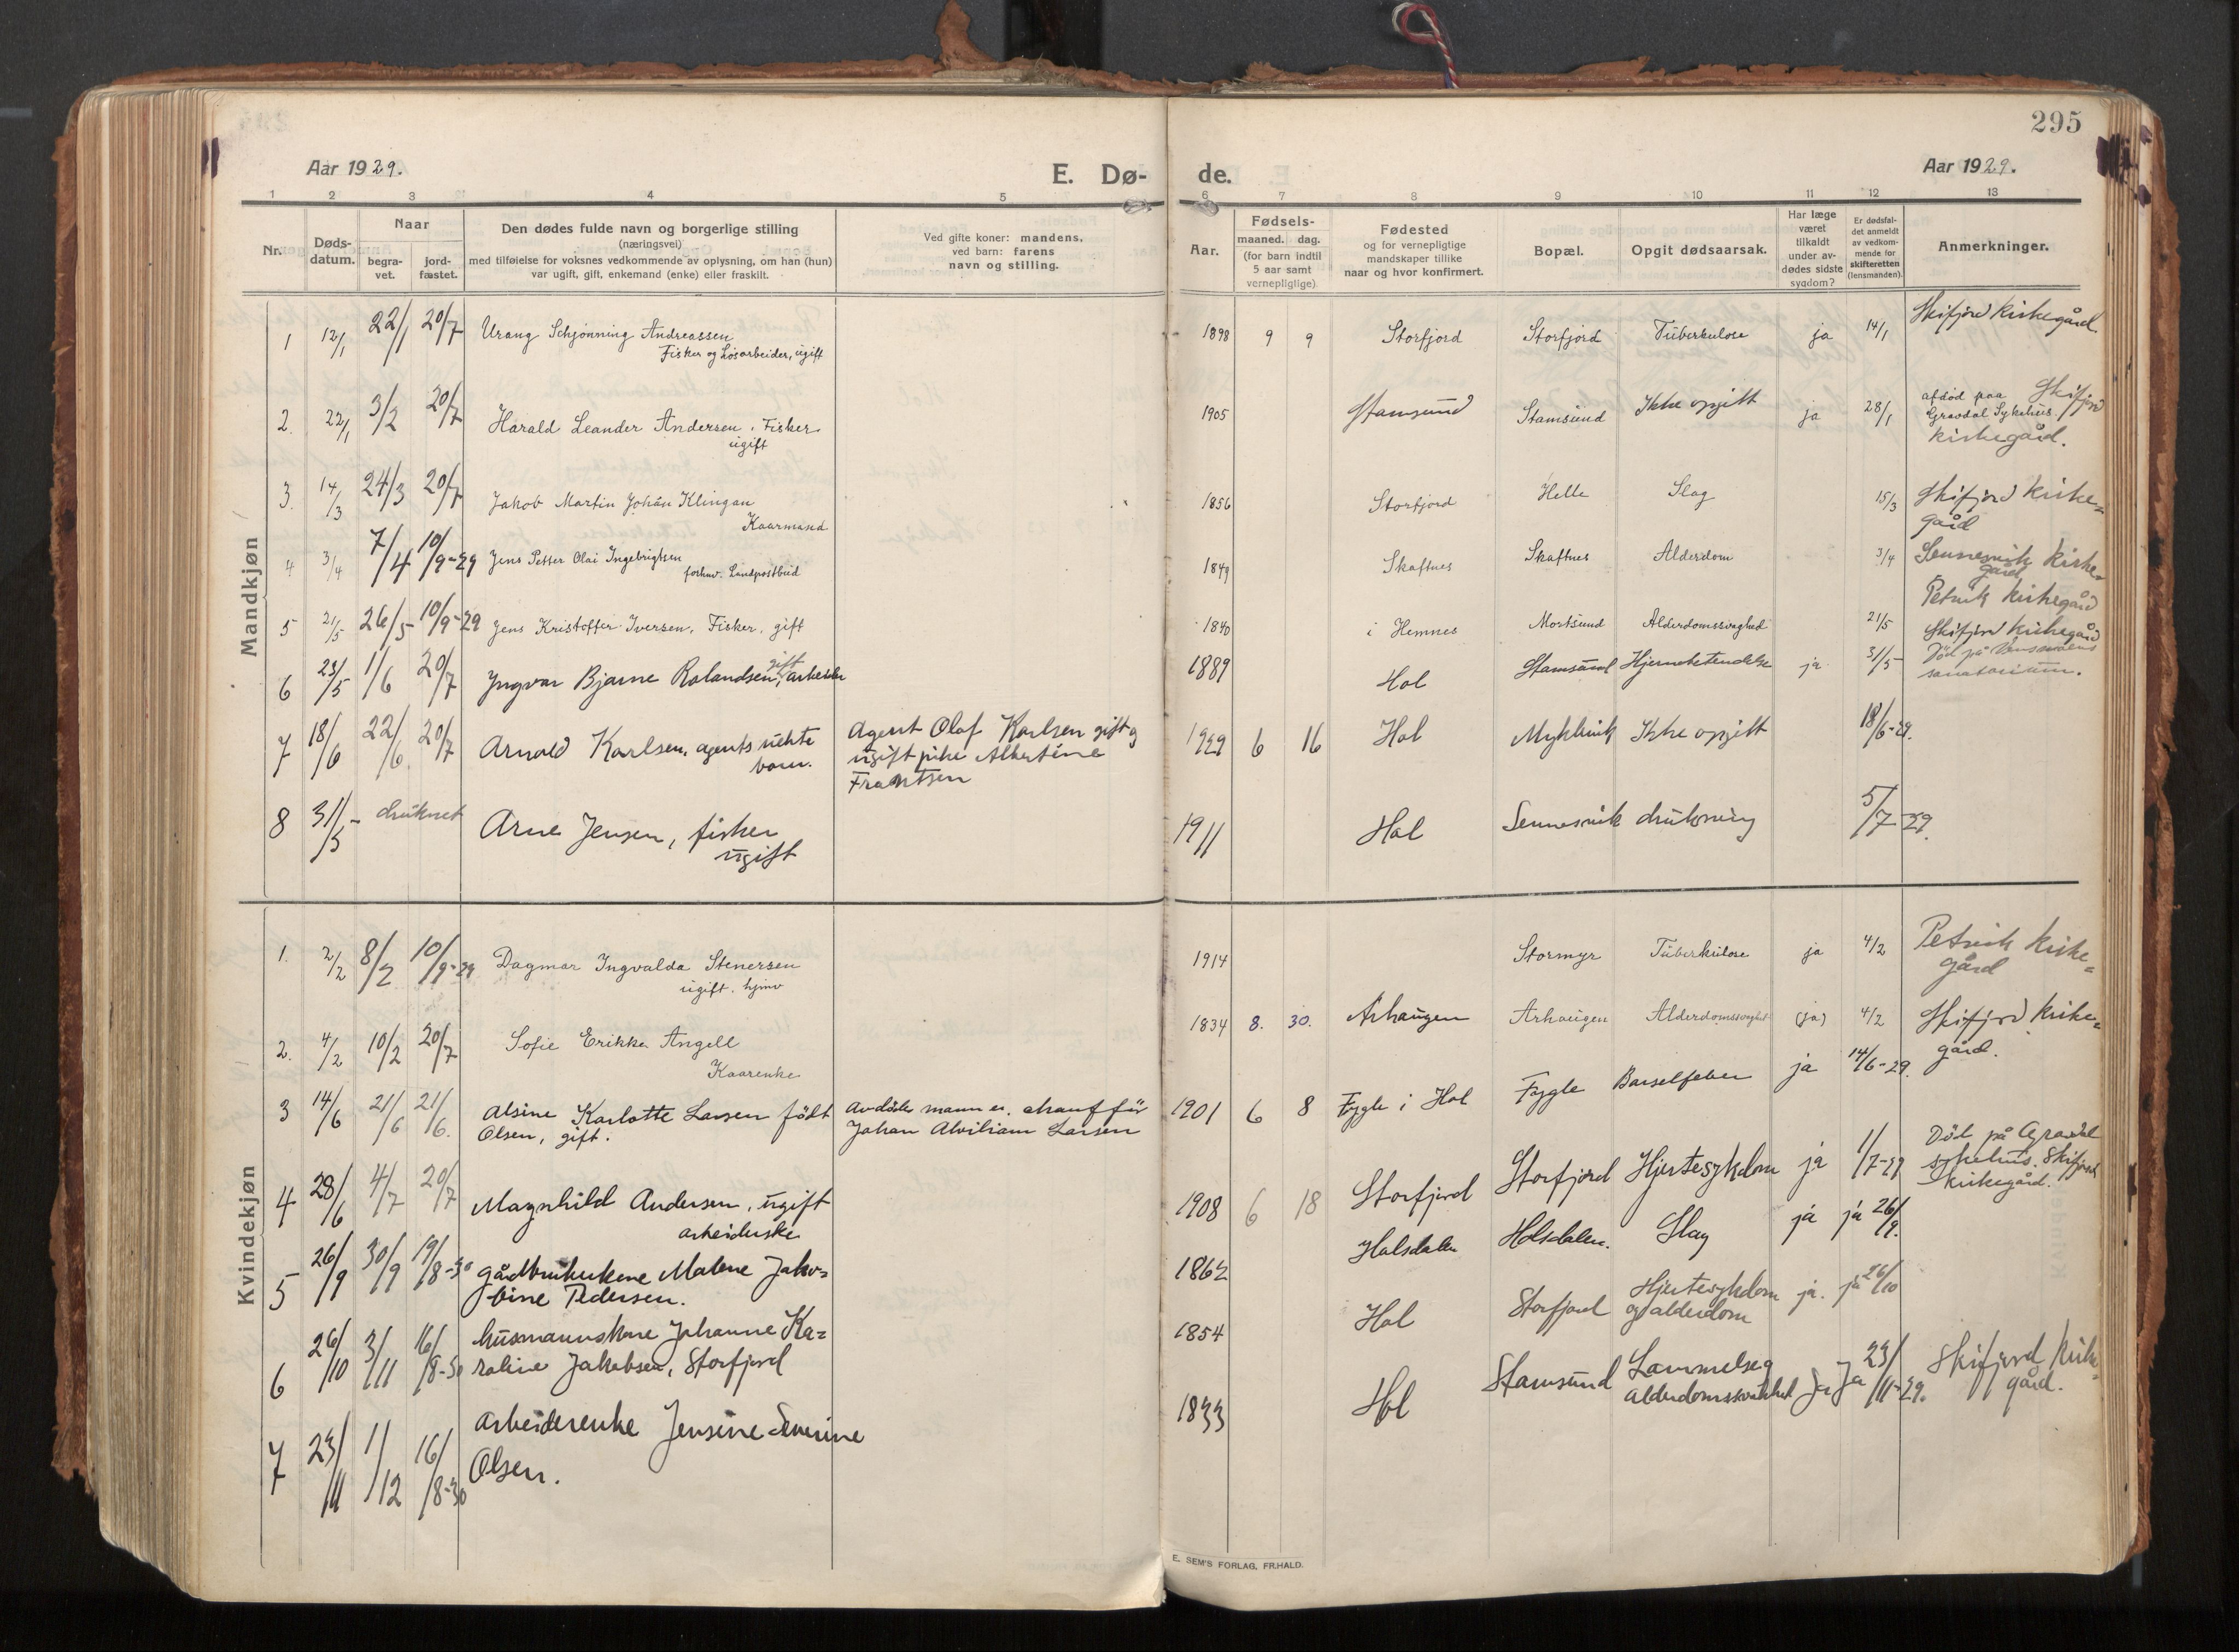 295
Aar 1929.
E. Dø-
de.
Aar 1929.
1 2 3 4 5 6 7 8 9 10 11 12 13
Nr.
Døds-
datum.
Naar
begra-
vet.
jord-
fæstet.
Den dødes fulde navn og borgerlige stilling
(næringsvei)
med tilføielse for voksnes vedkommende av oplysning, om han (hun)
var ugift, gift, enkemand (enke) eller fraskilt.
Ved gifte koner: mandens,
ved barn: farens
navn og stilling.
Aar.
Fødsels-
maaned. dag.
(for barn indtil
5 aar samt
vernepligtige)
Fødested
og for vernepligtige
mandskaper tillike
naar og hvor konfirmert.
Bopæl.
Opgit dødsaarsak.
Har læge
været
tilkaldt
under av-
dødes sidste
sygdom?
Er dødsfal-
det anmeldt
av vedkom-
mende for
skifteretten
(lensmanden).
Anmerkninger.
Mandkjøn
1 12/1 22/1 20/7 Urang Schjønning Andreassen 1898 9 9 Storfjord Storfjord Tuberkulose ja 14/1 Skifjord kirkegård.
Fisker og Løsarbeider, ugift
2. 22/1 3/2 20/7 Harald Leander Andersen, Fisker 1905 Stamsund Stamsund Ikke opgitt ja 28/1 afdød paa Skifjord
ugift Gravdal Sykehus.
kirkegård.
3. 14/3 24/3 20/7 Jakob Martin Johan Klingan 1856 Storfjord Helle Slag 15/3 Skifjord kirke=
Kaarmand gård
4 3/4 7/4 10/9-29 Jens Petter Olai Ingebrigtsen 1849 Skaftnes Skaftnes Alderdom 3/4 Sennesvik kirke=
forhnv. Landpostbud gård
5 21/5 26/5 10/9-29 Jens Kristoffer Iversen, Fisker, gift 1840 i Hemnes Mortsund Alderdomssvaghed 21/5 Petvik kirkegård
6 23/5 1/6 20/7 Yngvar Bjarne Rolandsen, gift, arbeider 1889 Hol Stamsund Hjernebetendelse ja 31/5 Skifjord kirkegård
Død på
sanatorium.
7 18/6 22/6 20/7 Arnold Karlsen, agents uekte Agent Olaf Karlsen gift og 1929 6 16 Hol Myklevik Ikke opgitt 18/6-29.
barn. ugift pike Albertine
Frantsen
8 31/5 - druknet Arne Jensen, fisker 1911 Hol Sennesvik drukning 5/7-29.
ugift
Kvindekjøn
1. 2/2 8/2 10/9-29 Dagmar Ingvalda Stenersen 1914 Stormyr Tuberkulose ja 4/2 Petvik kirke=
ugift. hjmv gård
2. 4/2 10/2 20/7 Sofie Erikke Angell 1834 8. 30. Arhaugen Arhaugen Alderdomssvaghet (ja) 4/2 Skifjord kirke=
Kaarenke gård.
3 14/6 21/6 21/6. Alsine Karlotte Larsen født Avdødes mann er, chauffør 1901 6 8 Fygle i Hol Fygle Barselfeber ja 14/6-29.
Olsen, gift. Johan Alviliam Larsen
4 28/6 4/7 20/7 Magnhild Andersen, ugift 1908 6 18 Storfjord Storfjord Hjertesykdom ja 1/7-29 Död på Gravdal
arbeiderske sykehus. Skifjord
kirkegård.
5 26/9 30/9 19/8-30 gårdbrukerkone Malene Jako= 1862 Holsdalen Holsdalen. Slag ja ja 26/9.
bine Pedersen.
6 26/10 3/11 16/8-30 husmannskone Johanne Ka= 1854 Hol Storfjord Hjertesykdom ja. ja 26/10
roline Jakobsen, Storfjord og alderdom
7 23/11 1/12 16/8-30 Arbeiderenke Jensine Severine 1833 Hol Stamsund Lammelse og Ja Ja 23/11-29. Skifjord kirke-
Olsen. alderdomssvakhet gård.
E. SEM'S FORLAG, FR.HALD.